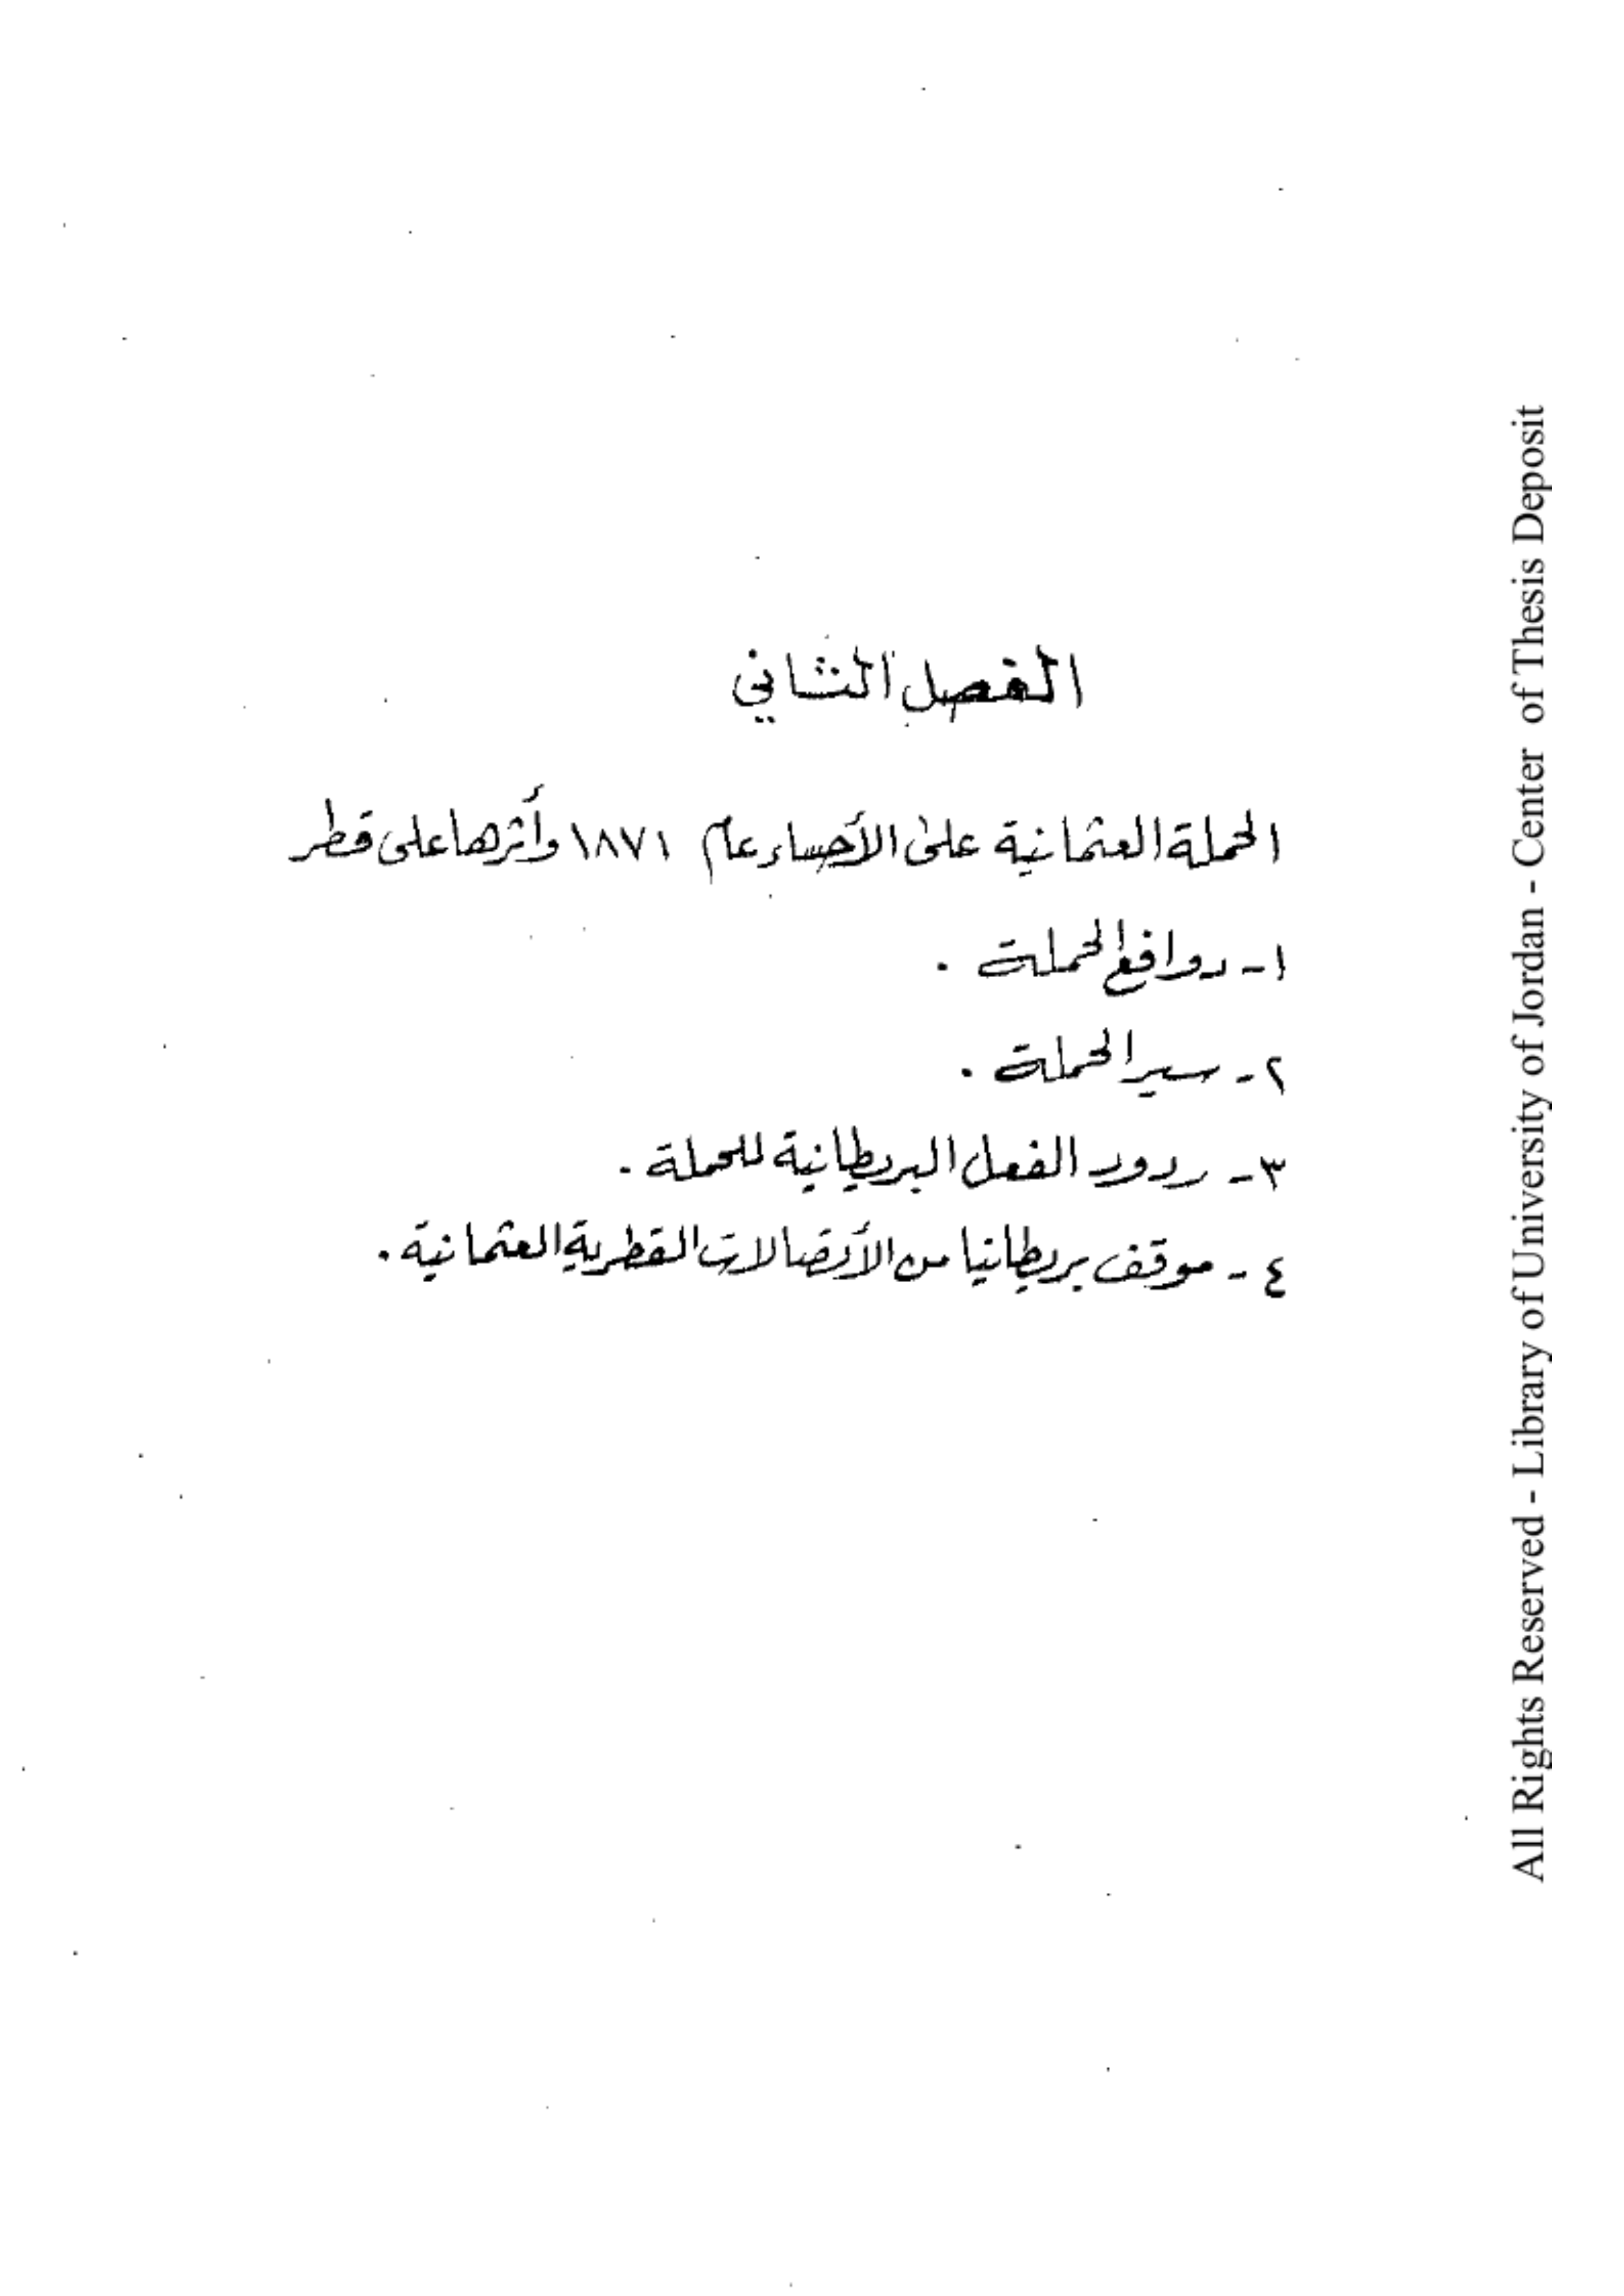 الفصل الثاني
الحملة العثمانية على الأحساء عام ١٨٧١ وأثرها على قطر
١- دوافع الحملة .
٢- سير الحملة .
٣- ردود الفعل البريطانية للحملة .
٤- موقف بريطانيا من الأتصالات القطرية العثمانية .
All Rights Reserved - Library of University of Jordan - Center of Thesis Deposit